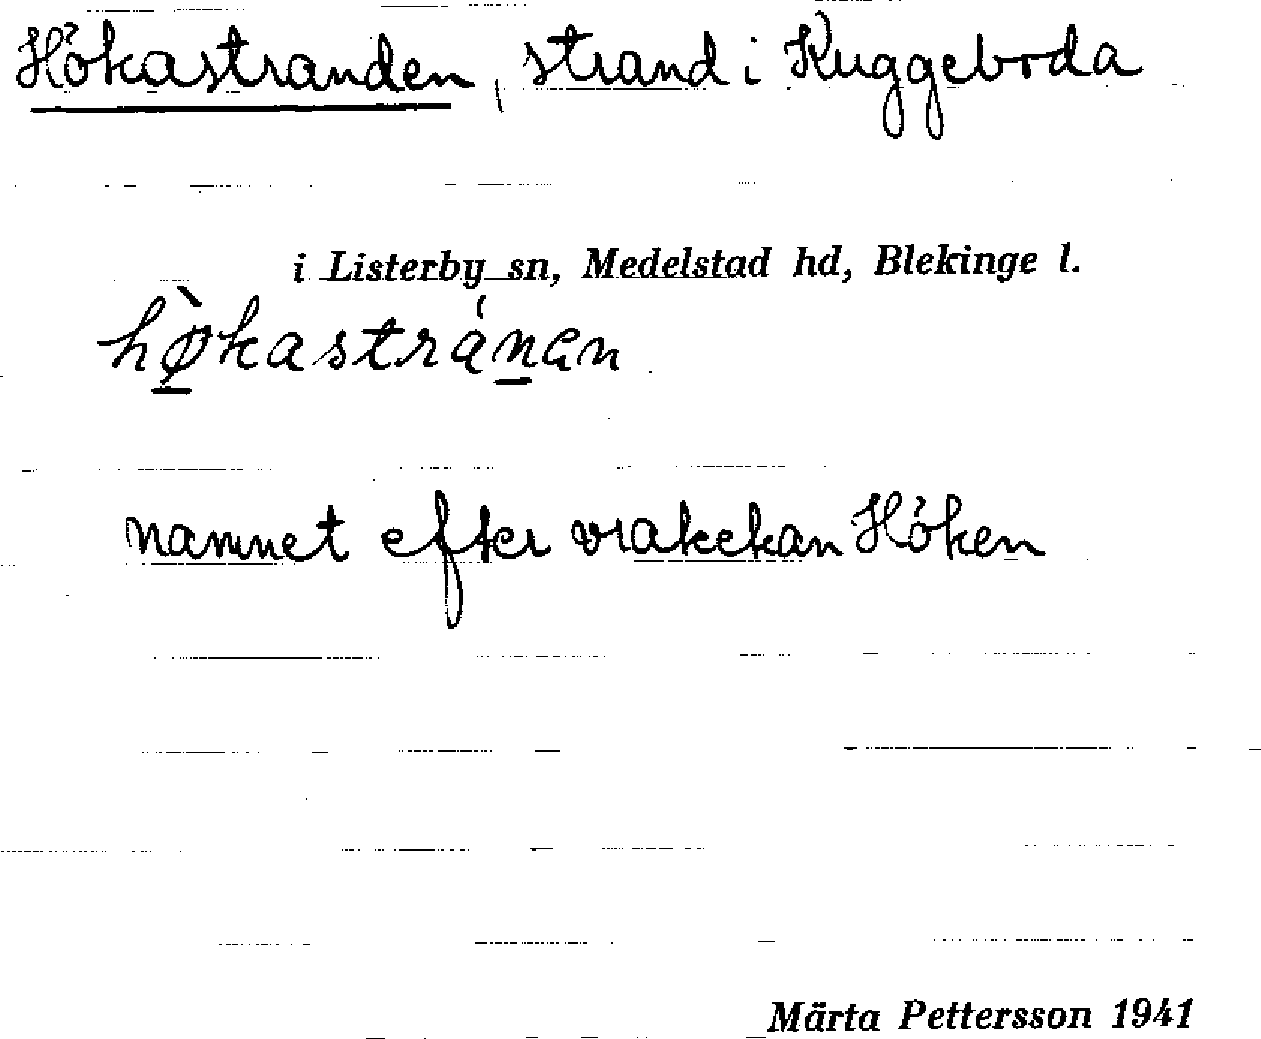 Hökastranden, strand i Kuggeboda
i Listerby sn, Medelstad hd, Blekinge l.
hø̀kastránan
namnet efter vrakekan Höken
Märta Pettersson 1941